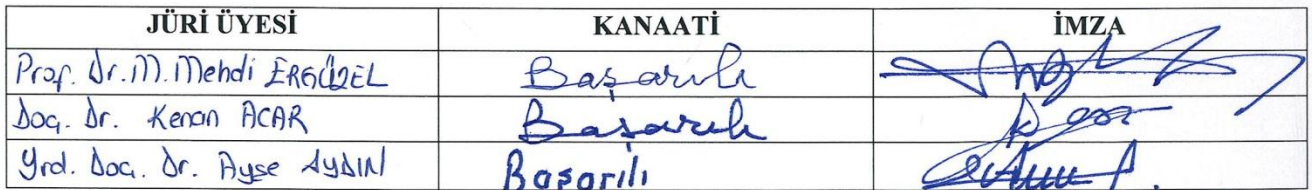 JÜRİ ÜYESİ KANAATİ İMZA
Prof. Dr. M. Mehdi ERGÜZEL Başarılı
Doç. Dr. Kenan ACAR Başarılı
Yrd. Doç. Dr. Ayşe AYDIN Başarılı